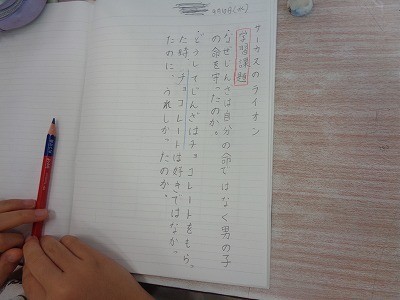 サーカスのライオン
学習課題
・なぜじんざは自分の命ではなく男の子
の命を守ったのか。
・どうしてじんざはチョコレートをもらっ
た時、チョコレートは好きではなか
たのに、うれしかったのか。